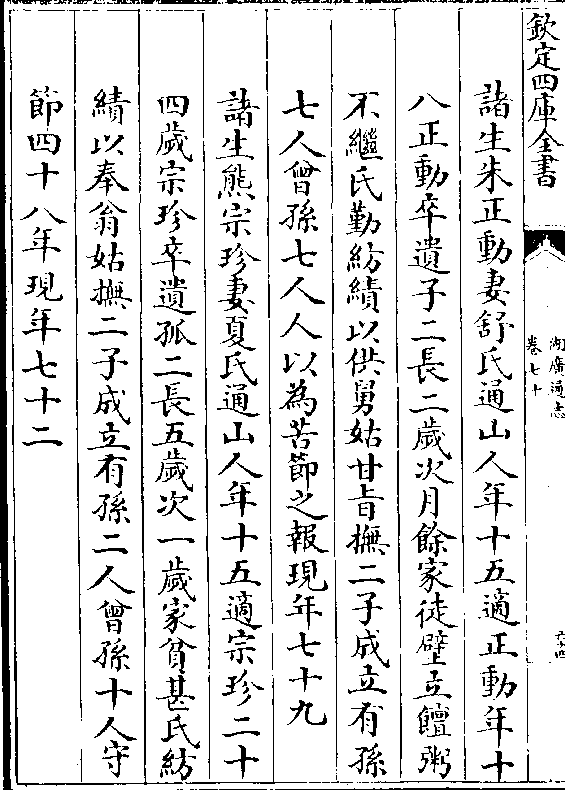 欽定四庫全書
湖廣通志
卷七十
諸生朱正動妻舒氏通山人年十五適正動年十
八正動卒遺子二長二歲次月餘家徒壁立饘粥
不繼氏勤紡績以供舅姑甘旨撫二子成立有孫
七人曾孫七人人以為苦節之報現年七十九
諸生熊宗珍妻夏氏通山人年十五適宗珍二十
四歲宗珍卒遺孤二長五歲次一歲家貧甚氏紡
績以奉翁姑撫二子成立有孫二人曾孫十人守
節四十八年現年七十二